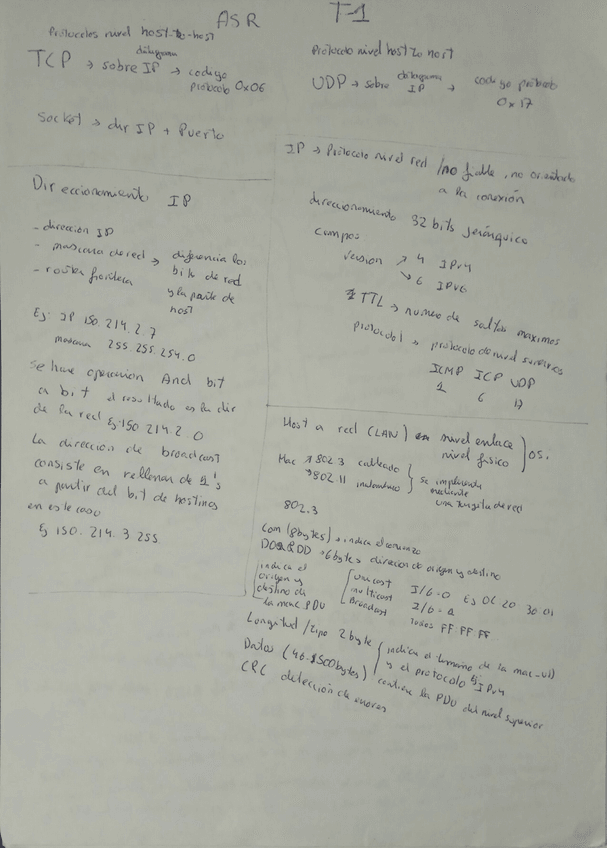 ASR T-1
Protocolos nivel host-to-host
TCP → sobre datagrama IP → codigo protocolo 0x06
Socket → dir IP + Puerto
Protocolo nivel host to host
UDP → sobre datagrama IP → codigo protocolo
0x17
Direccionamiento IP
- direccion IP
- mascara de red → diferencia los
bits de red
y la parte de
host
- router frontera
Ej: IP 150.214.2.7
mascara 255.255.254.0
se hace operacion And bit
a bit el resultado es la dir
de la red Ej 150.214.2.0
La direccion de broadcast
consiste en rellenar de 1's
a partir del bit de hosting
en este caso
Ej 150.214.3.255
IP → Protocolo nivel red / no fiable, no orientado
a la conexión
direccionamiento 32 bits jerárquico
campos
version ↗ 4 IPv4
↘ 6 IPv6
TTL → numero de saltos maximos
protocolo → protocolo de nivel
ICMP ICP UDP
1 6 17
Host a red (LAN) en nivel enlace
nivel fisico
Mac 802.3 cableado
802.11 inalambrico
se implementa
mediante
una tarjeta de red
802.3
Com (8bytes) → indica el comienzo
6bytes direccion de origen y destino
indica el
origen y
destino de
la mac PDU
unicast I/G=0 Ej 0C 20 30 01
multicast
broadcast todos FF FF FF
Longitud / tipo 2 byte indica el tamaño de la
y el protocolo Ej IPv4
Datos (46-1500bytes) contiene la PDU del nivel superior
CRC detección de errores